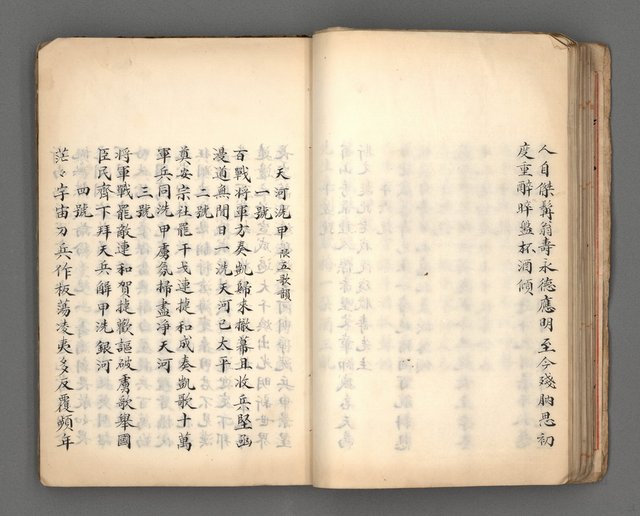 人自傑髯翁壽永德應明至今殘朒思初
度重醉晬盤杯酒傾
天河洗甲 限五歌韻
一號
百戰將軍方奏凱歸來撤幕且收兵堅函
漫道無聞日一洗天河已太平
二號
奠安宗社罷干戈連捷和成奏凱歌十萬
軍兵同洗甲虜氛掃盡淨天河
三號
將軍戰罷敵連和賀捷歡謳破虜歌舉國
臣民齊下拜天兵解甲洗銀河
四號
茫々宇宙刀兵作板蕩凌夷多反覆頻年